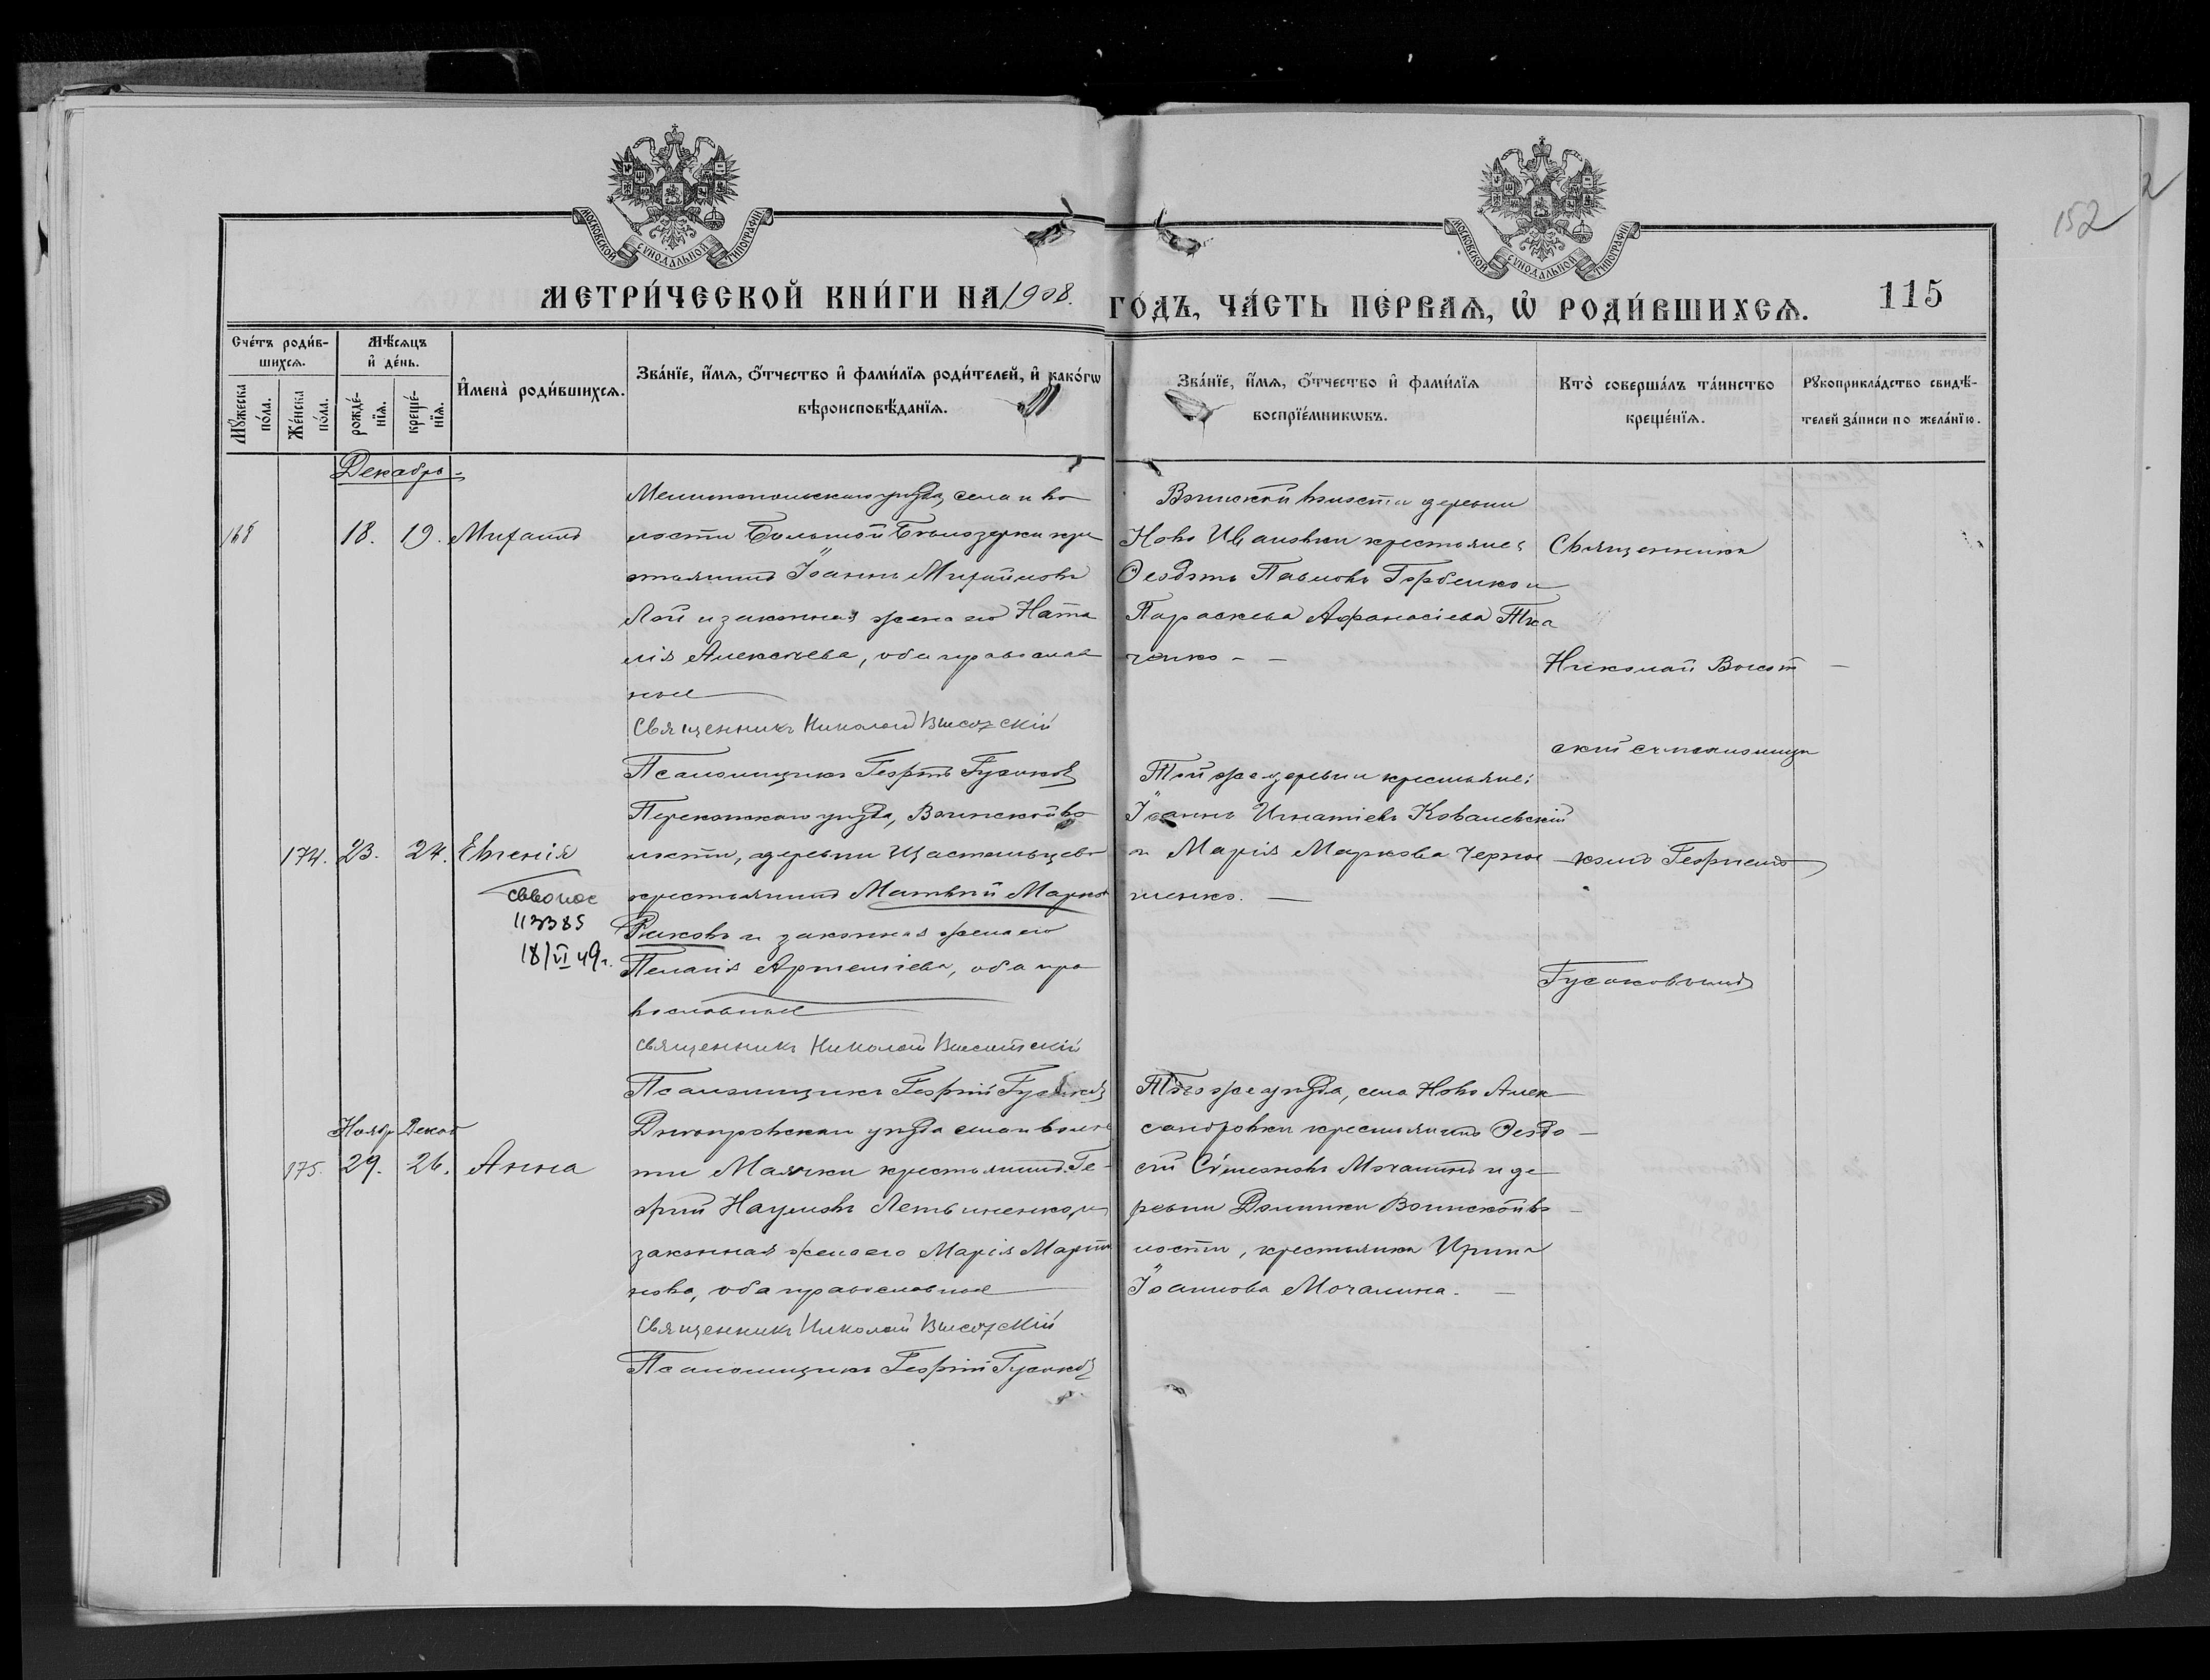 152
2
МОСКОВСКОЙ СУНОДАЛЬНОЙ ТИПОГРАФІИ
МОСКОВСКОЙ СУНОДАЛЬНОЙ ТИПОГРАФІИ
МЕТРИ́ЧЕСКОЙ КНИ́ГИ НА 1908.
ГО́ДЪ, ЧА́СТЬ ПЕ́РВАѦ, Ѡ҆ РОДИ́ВШИХСѦ.
115
Сче́тъ роди́в-
шихсѧ.
Мꙋ́жеска
по́ла.
Же́нска
по́ла.
Мѣ́сѧцъ
и҆ де́нь.
рожде́-
нїѧ.
креще́-
нїѧ.
И҆мена̀ роди́вшихсѧ.
Зва́нїе, и҆́мѧ, ѻ҆́тчество и҆ фами́лїѧ роди́телей, и҆ како́гѡ
вѣроисповѣ́данїѧ.
Зва́нїе, и҆́мѧ, ѻ҆́тчество и҆ фами́лїѧ
воспрїе́мникѡвъ.
Кто̀ соверша́лъ та́инство
креще́нїѧ.
Рꙋкоприкла́дство свидѣ́-
телей за́писи по жела́нїю.
Декабрь
168
18. 19. Михаилъ
Мелитопольскаго уѣзда, села и во
лости Большой Бѣлозерки кре
стьянинъ Іоаннъ Михайловъ
Лой и законная жена его Ната
лія Алексѣева, оба православ
ные
Священникъ Николай Высотскій
Псаломщикъ Георгій Гусаковъ
Воинской волости деревни
Ново Ивановки крестьяне:
Ѳеодотъ Павловъ Горбенко и
Параскева Афанасіева Тка
ченко - -
Священникъ
Николай Высот -
скій съ псаломщи
174. 23. 24. Евгенія
свво иос
113385
18/VI 49 г.
Перекопскаго уѣзда, Воинской во
лости, деревни Щастливцево
крестьянинъ Матѳей Марковъ
Рыковъ и законная жена его
Пелагія Артеміева, оба пра
вославные
Священникъ Николай Высотскій
Псаломщикъ Георгій Гусаковъ
Той же деревни крестьяне:
Іоаннъ Игнатіевъ Ковалевскій
и Марія Маркова Черно
шенко. -
комъ Георгіемъ
Гусаковымъ
Ноябр Декаб
175. 29. 26. Анна
Днѣпровскаго уѣзда села и волос
ти Маячки крестьянинъ Ге-
оргій Наумовъ и
законная жена его Марія Марти
нова, оба православные
Священникъ Николай Высотскій
Псаломщикъ Георгій Гусаковъ
Того же уѣзда, села Ново Алек
сандровки крестьянинъ Ѳеодо -
сій Сѵмеоновъ Мочалинъ и де
ревни Воинской во -
лости, крестьянка Ирина
Іоаннова Мочалина. -